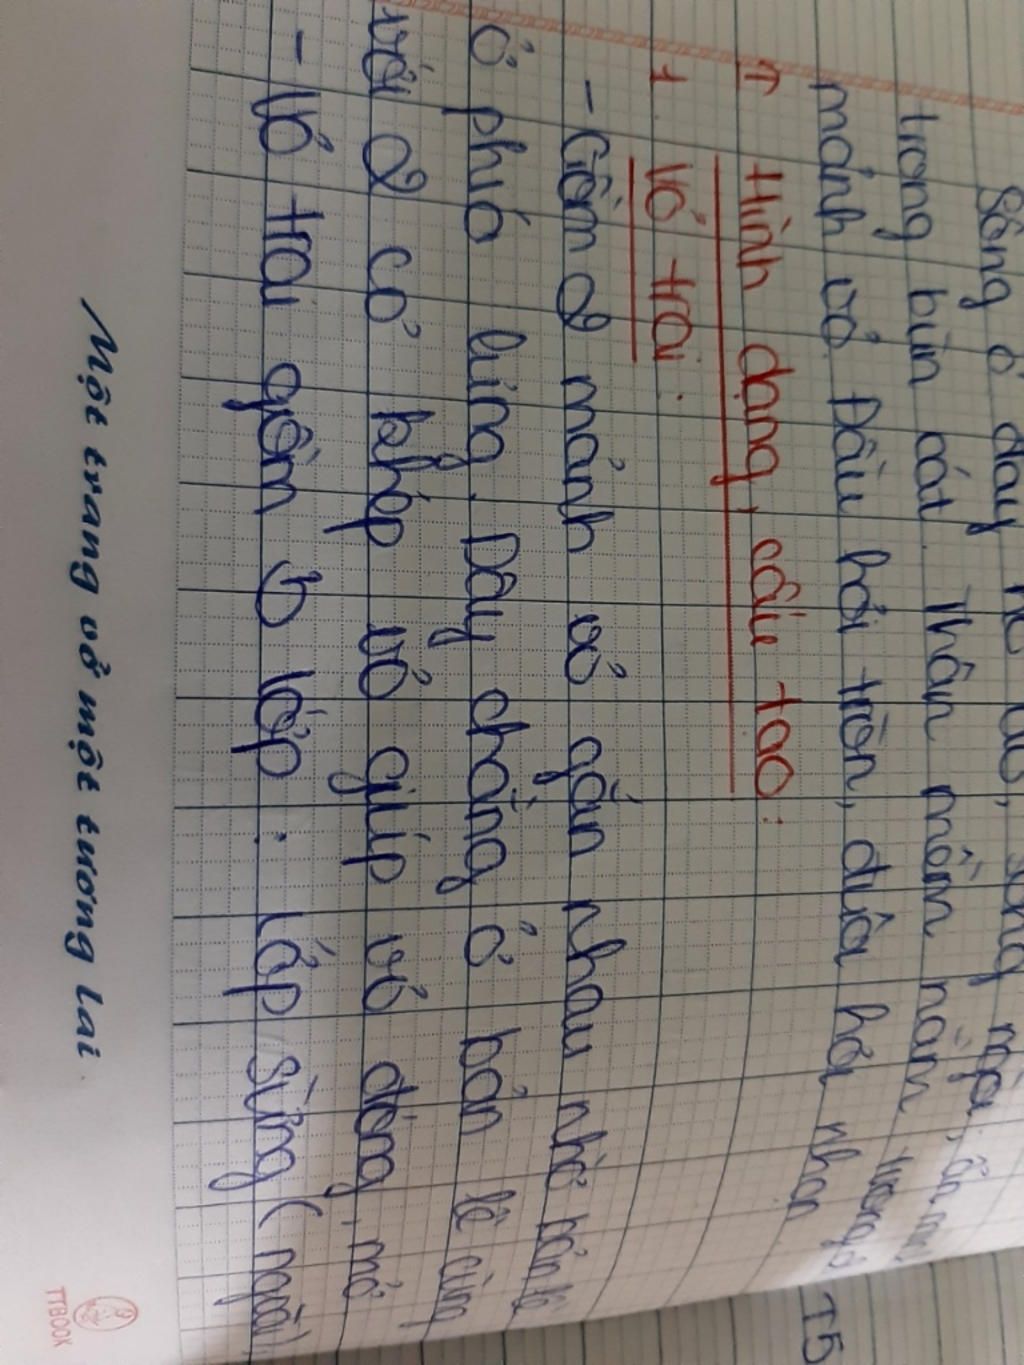 sống ở đáy hồ ao, sông ngòi, ẩn mình
trong bùn cát. Thân mềm nằm trong 2
mảnh vỏ. Đầu hơi tròn, đuôi hơi nhọn
I Hình dạng, cấu tạo:
1. Vỏ trai:
- Gồm 2 mảnh vỏ gắn nhau nhờ bản lề
ở phía lưng. Dây chằng ở bản lề cùng
với 2 cơ khép vỏ giúp vỏ đóng, mở
- Vỏ trai gồm 3 lớp: lớp sừng (ngoài)
Một trang vở một tương lai
TTBOOK